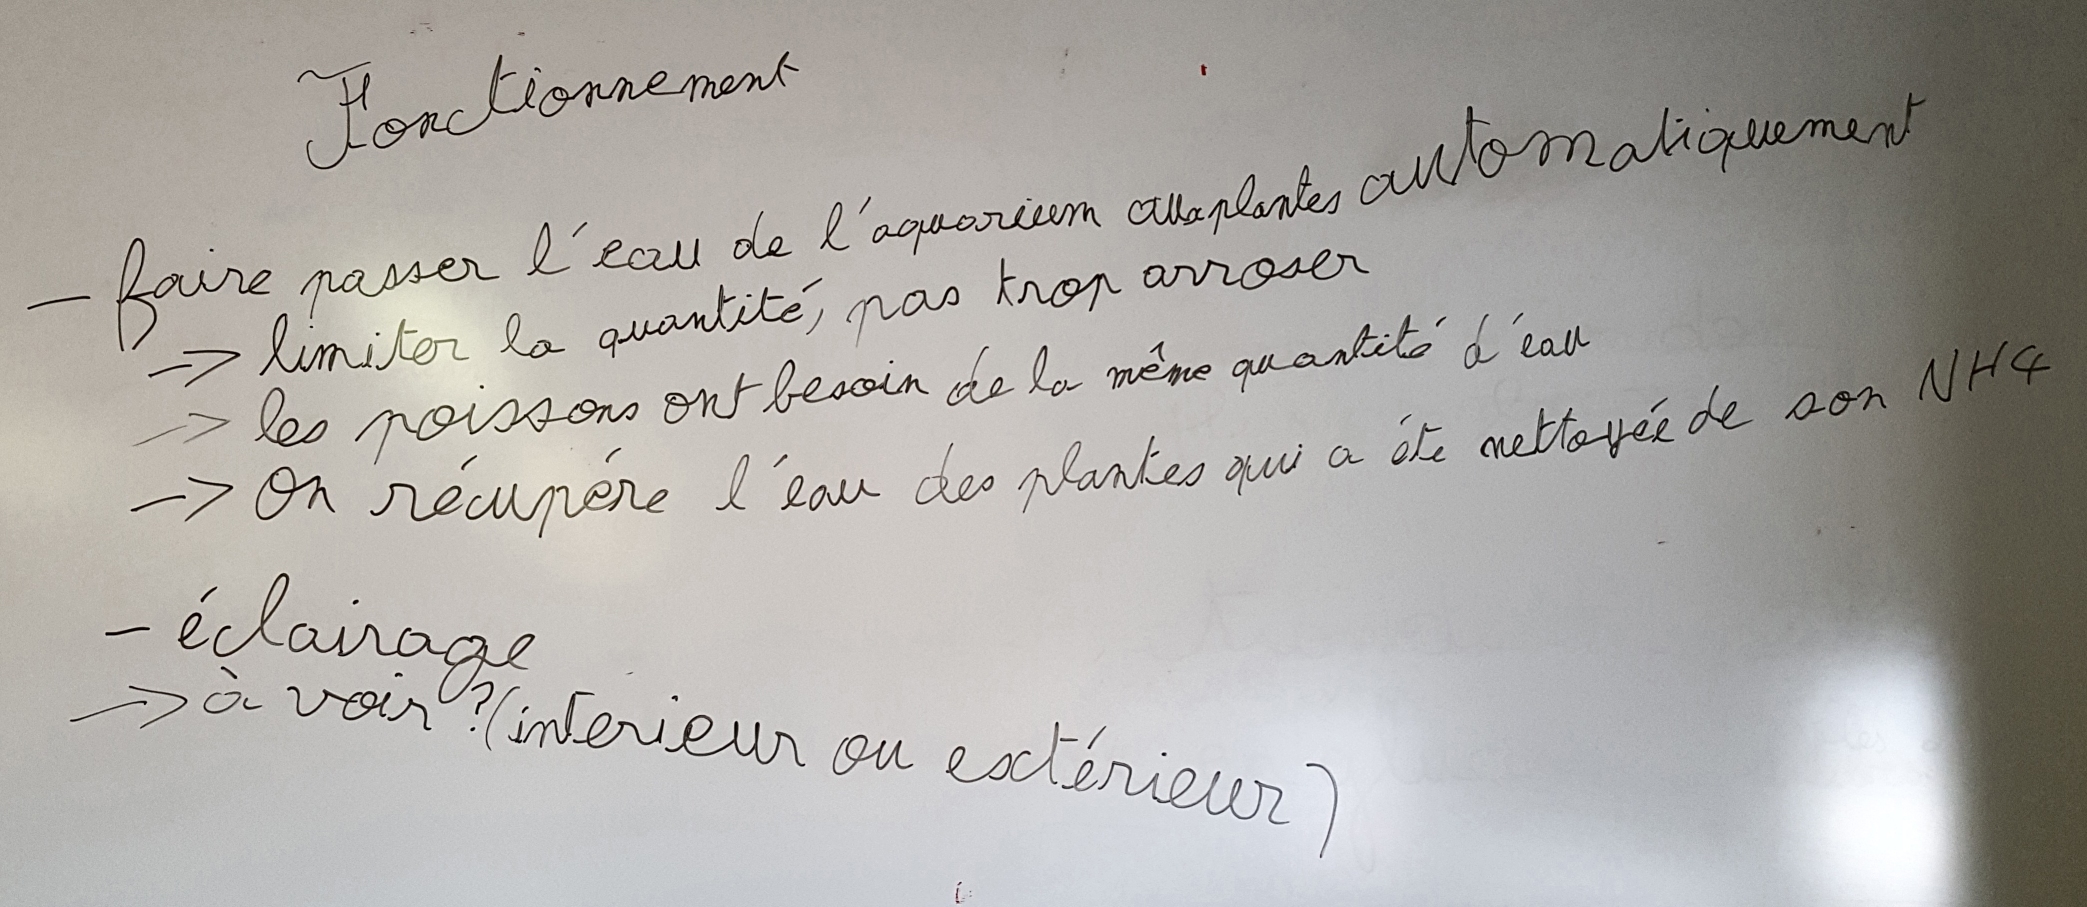 Fonctionnement
- faire passer l'eau de l'aquarium aux plantes automatiquement
-> limiter la quantité, pas trop arroser
-> les poissons ont besoin de la même quantité d'eau
-> On récupére l'eau des plantes qui a éte nettoyée de son NH4
- éclairage
-> à voir ? (interieur ou extérieur)